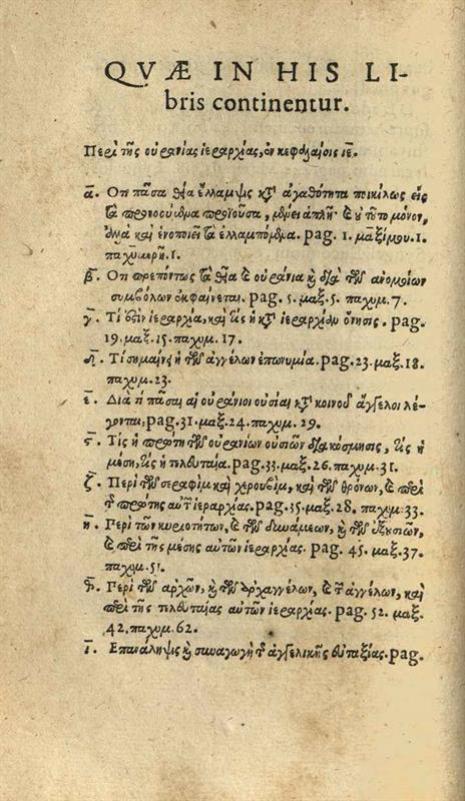 QVÆ IN HIS LI-
bris continentur.
Περὶ τῆς οὐρανίας ἱεραρχίας, ἐν κεφαλαίοις ιε̅.
α̅. Ὅτι πᾶσα θεία ἔλλαμψις κατ' ἀγαθότητα ποικίλως εἰς
τὰ προνοούμενα προϊοῦσα, μένει ἁπλῆ· καὶ οὐ τοῦτο μόνον,
ἀλλὰ καὶ ἑνοποιεῖ τὰ ἐλλαμπόμενα. pag. 1. μαξίμου. 1.
παχυμερη. 1.
β̅. Ὅτι πρεπόντως τὰ θεῖα καὶ οὐράνια καὶ διὰ τῶν ἀνομοίων
συμβόλων ἐκφαίνεται. pag. 5. μαξ. 5. παχυμ. 7.
γ̅. Τί ἐστιν ἱεραρχία, καὶ τίς ἡ κατ' ἱεραρχίαν ὄνησις. pag.
19. μαξ. 15. παχυμ. 17.
δ̅. Τί σημαίνει ἡ τῶν ἀγγέλων ἐπωνυμία. pag. 23. μαξ. 18.
παχυμ. 23.
ε̅. Διὰ τί πᾶσαι αἱ οὐράνιοι οὐσίαι κατὰ κοινοῦ ἄγγελοι λέ-
γονται, pag. 31. μαξ. 24. παχυμ. 29.
ϛ̅. Τίς ἡ πρώτη τῶν οὐρανίων οὐσιῶν διακόσμησις, τίς ἡ
μέση, τίς ἡ τελευταία. pag. 33. μαξ. 26. παχυμ. 31.
ζ̅. Περὶ τῶν σεραφὶμ καὶ χερουβὶμ, καὶ τῶν θρόνων, καὶ περὶ
τῆς πρώτης αὐτῶν ἱεραρχίας. pag. 35. μαξ. 28. παχυμ. 33.
η̅. Περὶ τῶν κυριοτήτων, καὶ τῶν δυνάμεων, καὶ τῶν ἐξουσιῶν,
καὶ περὶ τῆς μέσης αὐτῶν ἱεραρχίας. pag. 45. μαξ. 37.
παχυμ. 51.
θ̅. Περὶ τῶν ἀρχῶν, καὶ τῶν ἀρχαγγέλων, καὶ τῶν ἀγγέλων, καὶ
περὶ τῆς τελευταίας αὐτῶν ἱεραρχίας. pag. 52. μαξ.
42. παχυμ. 62.
ι̅. Ἐπανάληψις καὶ συναγωγὴ τῆς ἀγγελικῆς εὐταξίας. pag.